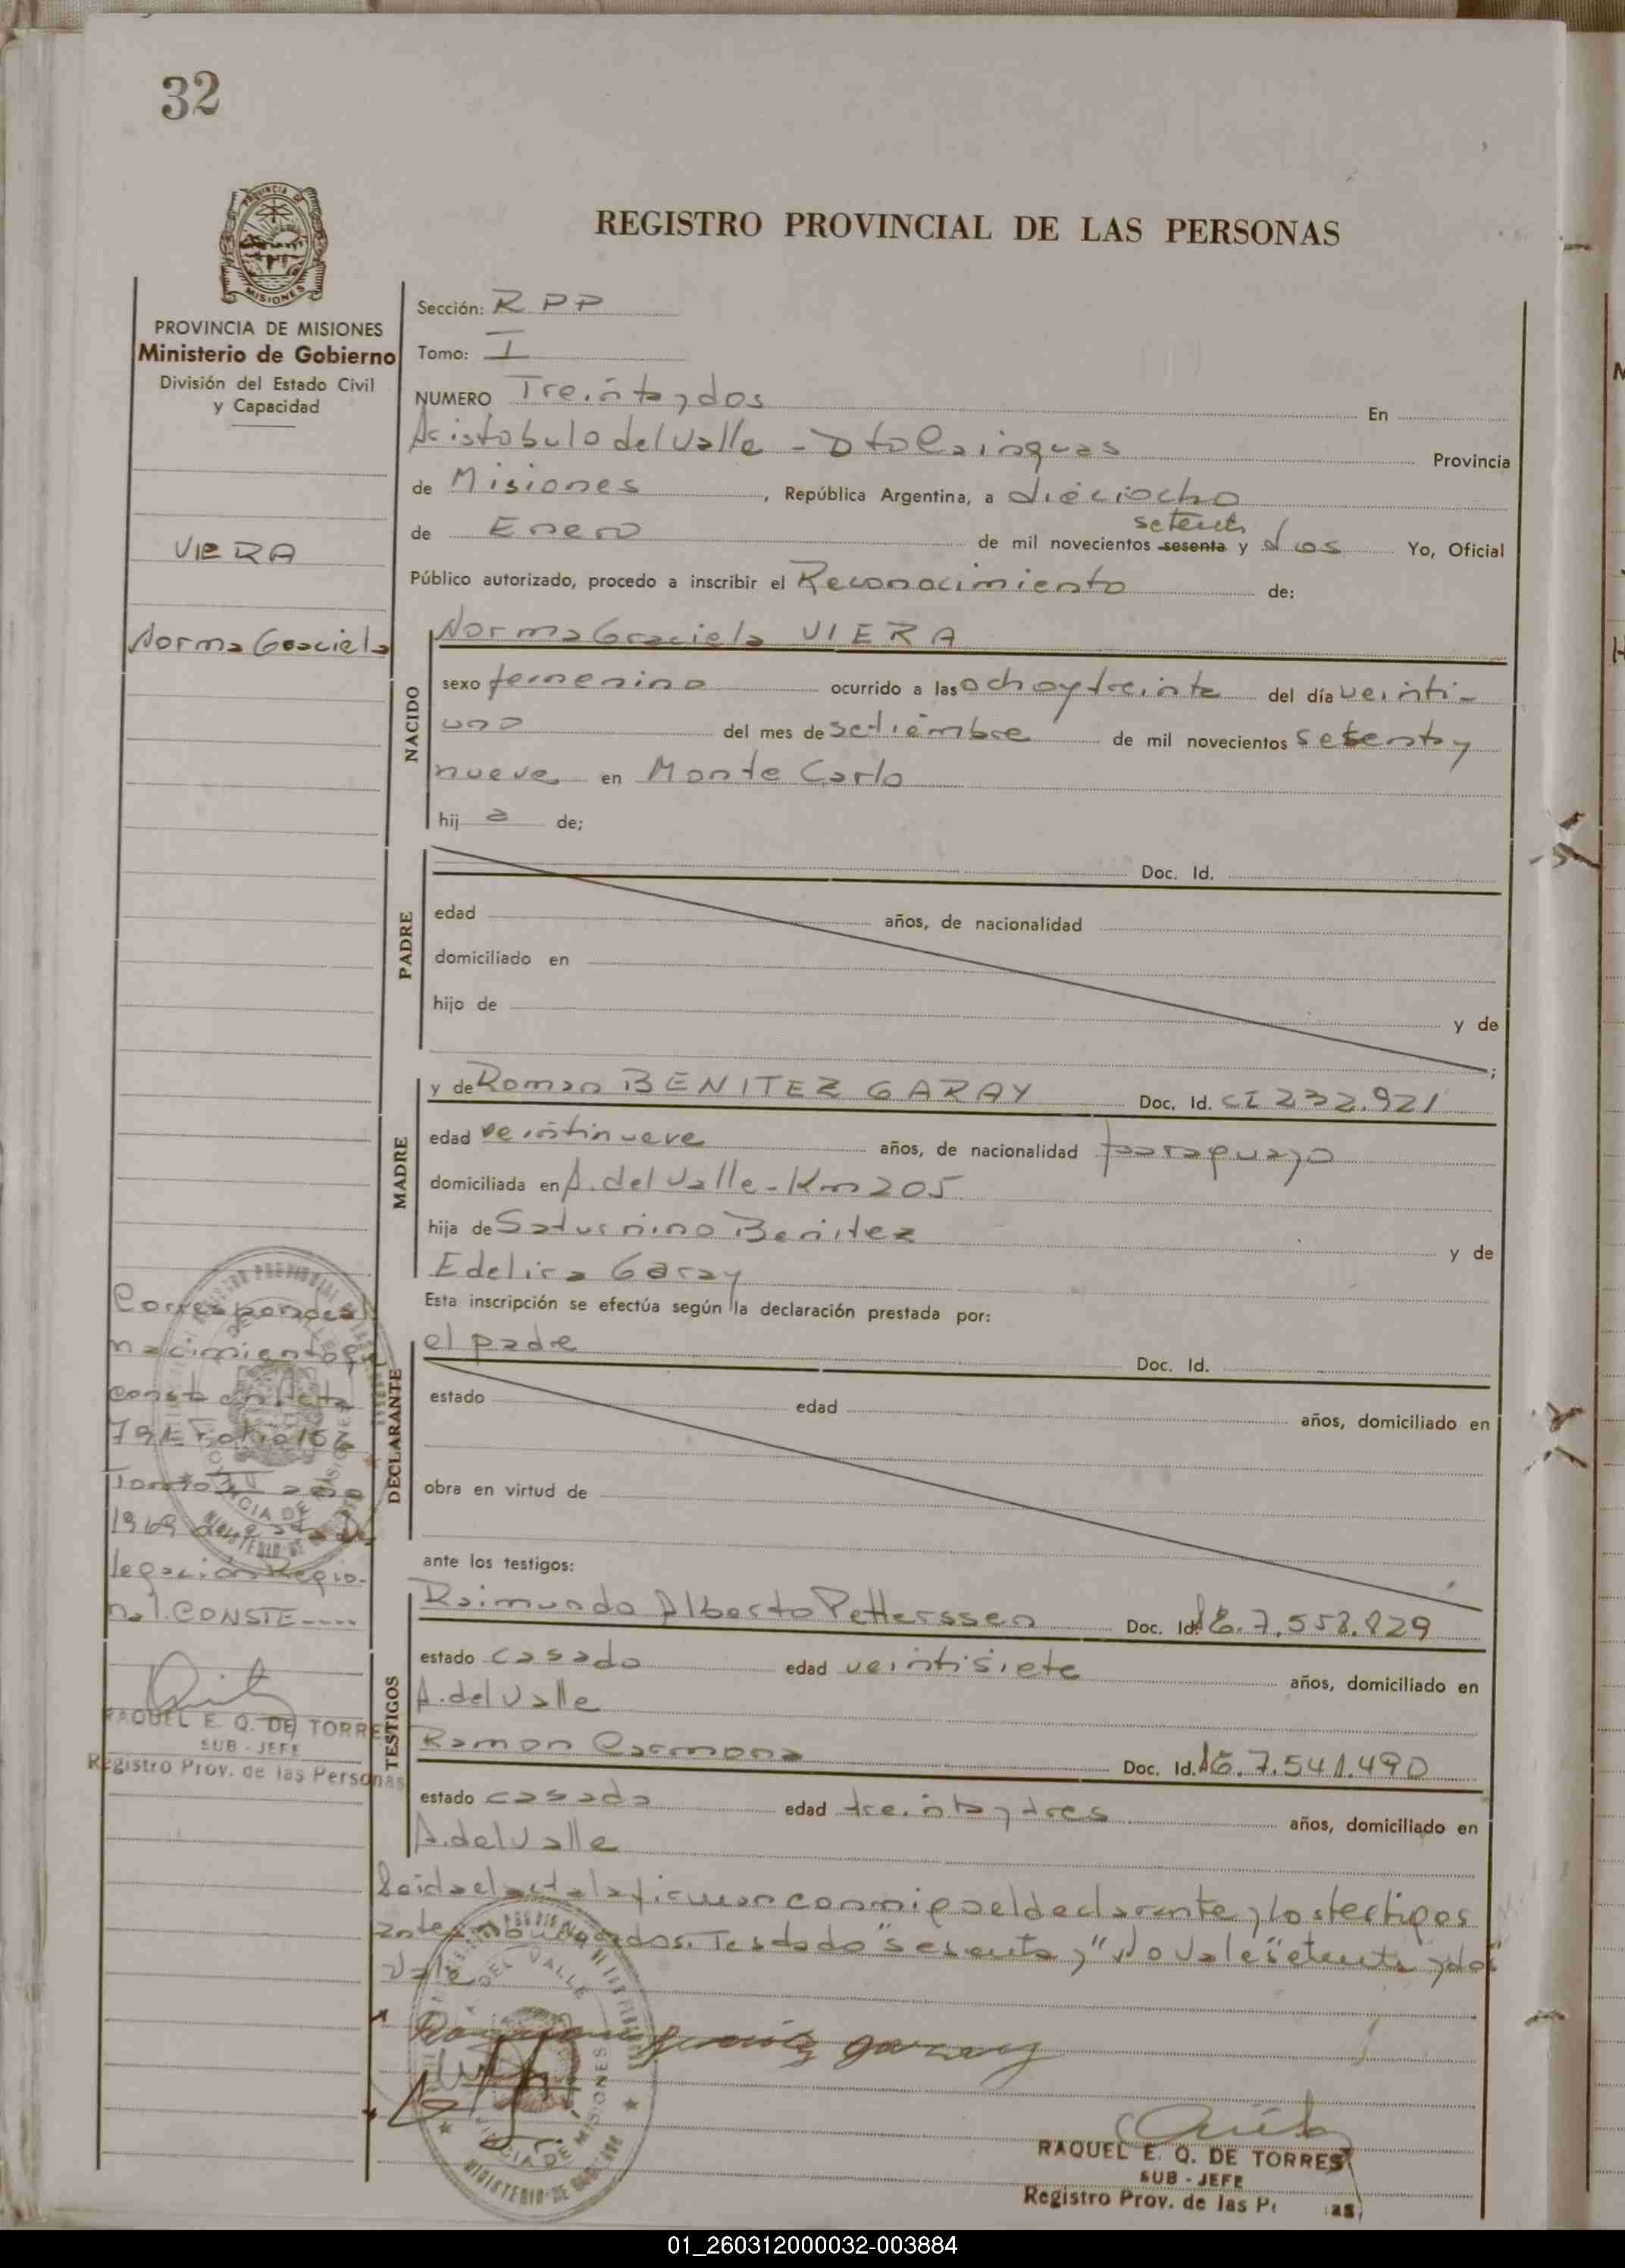 32
REGISTRO PROVINCIAL DE LAS PERSONAS
PROVINCIA DE MISIONES
Ministerio de Gobierno
División del Estado Civil
y Capacidad
VIERA
Norma Graciela
Sección: R P P
Tomo: I
NUMERO Treinta y dos En
Aristobulo del Valle - Provincia
de Misiones, República Argentina, a dieciocho
de Enero de mil novecientos sesenta y setenta dos Yo, Oficial
Público autorizado, procedo a inscribir el Reconocimiento de:
NACIDO
Norma Graciela VIERA
sexo femenino ocurrido a las ocho y treinta del día veinti-
uno del mes de setiembre de mil novecientos sesenta y
nueve en Monte Carlo
hij a de;
PADRE
Doc. Id.
edad años, de nacionalidad
domiciliado en
hijo de y de
;
MADRE
y de Roman BENITEZ GARAY Doc. Id. CI 232.921
edad veintinueve años, de nacionalidad paraguayo
domiciliada en A. del Valle - Km 205
hija de Saturnino Benitez y de
Edelira Garay
Esta inscripción se efectúa según la declaración prestada por:
DECLARANTE
el padre Doc. Id.
estado edad años, domiciliado en
obra en virtud de
ante los testigos:
TESTIGOS
Raimundo Alberto Petterssen Doc. Id. 7.558.829
estado casado edad veintisiete años, domiciliado en
A. del Valle
Ramon Carmona Doc. Id. 7.541.490
estado casado edad treinta y tres años, domiciliado en
A. del Valle
Leida el acta la firman conmigo el declarante y los testigos
antes mencionados. Testado "sesenta y" No Vale "setenta y dos"
Vale
Corresponde al
nacimiento que
consta en Acta
Folio 166
Tomo IV año
1969 de esta De
legación Regio-
nal. CONSTE----
RAQUEL E. Q. DE TORRES
SUB - JEFE
Registro Prov. de las Personas
RAQUEL E. Q. DE TORRES
SUB - JEFE
Registro Prov. de las P as
01_260312000032-003884